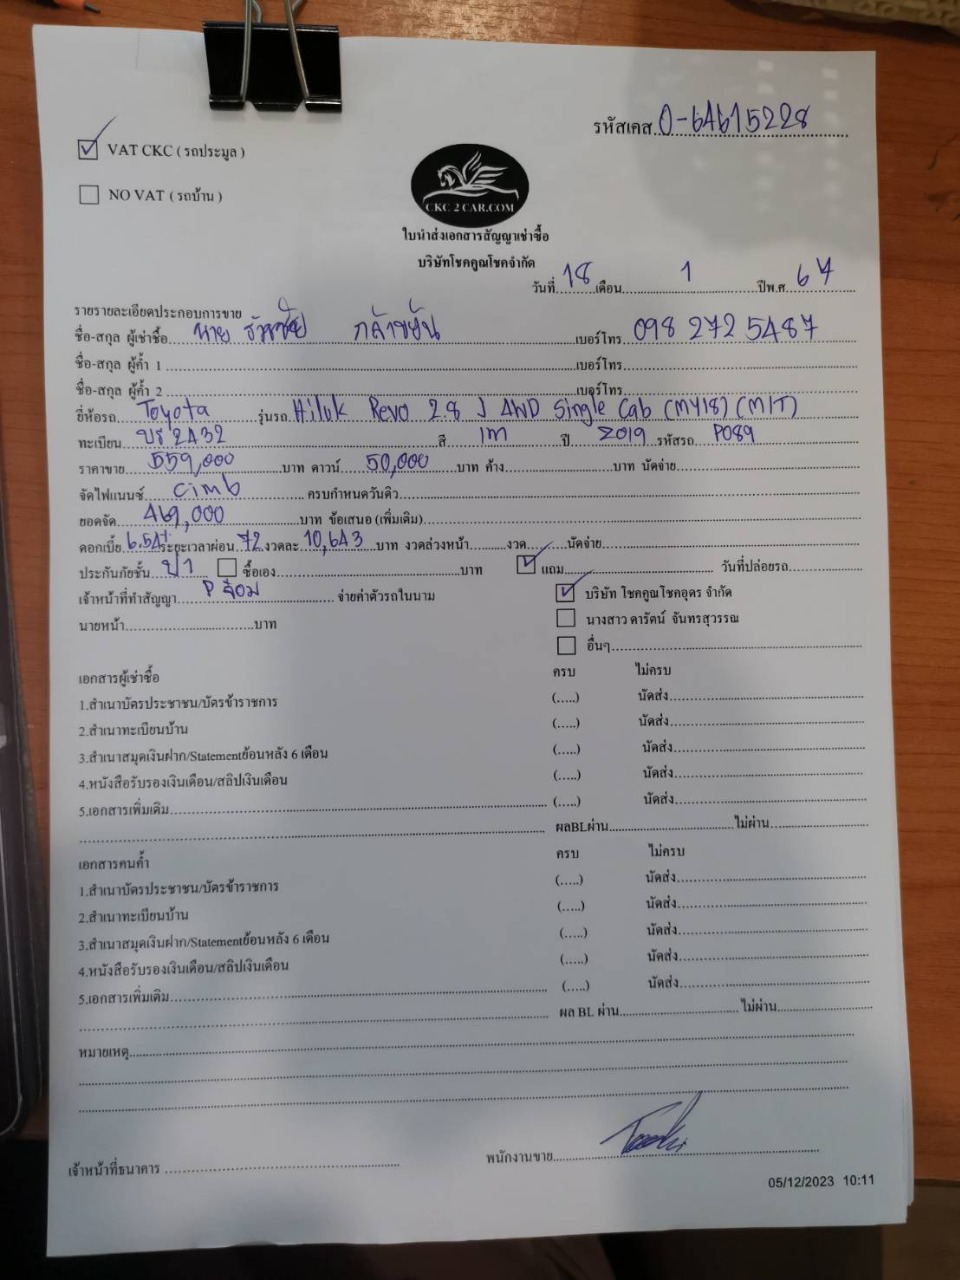 รหัสเคส 0-64615228
VAT CKC ( รถประมูล )
NO VAT ( รถบ้าน )
CKC 2 CAR.COM
ใบนำส่งเอกสารสัญญาเช่าซื้อ
บริษัทโชคคูณโชคจำกัด
วันที่ 18 เดือน 1 ปีพ.ศ 67
รายรายละเอียดประกอบการขาย
ชื่อ-สกุล ผู้เช่าซื้อ นาย ธวัชชัย กล้าขยัน เบอร์โทร 098 272 5487
ชื่อ-สกุล ผู้ค้ำ 1 เบอร์โทร
ชื่อ-สกุล ผู้ค้ำ 2 เบอร์โทร
ยี่ห้อรถ Toyota รุ่นรถ Hilux Revo 2.8 J 4WD Single Cab (MY18) (M/T)
ทะเบียน บร 2432 สี เทา ปี 2019 รหัสรถ P089
ราคาขาย 559,000 บาท ดาวน์ 50,000 บาท ค้าง บาท นัดจ่าย
จัดไฟแนนซ์ cimb ครบกำหนดวันคิว
ยอดจัด 469,000 บาท ข้อเสนอ (เพิ่มเติม)
ดอกเบี้ย 6.54 ระยะเวลาผ่อน 72 งวดละ 10,643 บาท งวดล่วงหน้า งวด นัดจ่าย
ประกันภัยชั้น ป1 ซื้อเอง บาท แถม วันที่ปล่อยรถ
เจ้าหน้าที่ทำสัญญา P จ๋อม จ่ายค่าตัวรถในนาม บริษัท โชคคูณโชคอุดร จำกัด
นายหน้า บาท นางสาว ดารัตน์ จันทรสุวรรณ
อื่นๆ
เอกสารผู้เช่าซื้อ ครบ ไม่ครบ
1.สำเนาบัตรประชาชน/บัตรข้าราชการ (.....) นัดส่ง
2.สำเนาทะเบียนบ้าน (.....) นัดส่ง
3.สำเนาสมุดเงินฝาก/Statementย้อนหลัง 6 เดือน (.....) นัดส่ง
4.หนังสือรับรองเงินเดือน/สลิปเงินเดือน (.....) นัดส่ง
5.เอกสารเพิ่มเติม (.....) นัดส่ง
ผลBLผ่าน ไม่ผ่าน
เอกสารคนค้ำ ครบ ไม่ครบ
1.สำเนาบัตรประชาชน/บัตรข้าราชการ (.....) นัดส่ง
2.สำเนาทะเบียนบ้าน (.....) นัดส่ง
3.สำเนาสมุดเงินฝาก/Statementย้อนหลัง 6 เดือน (.....) นัดส่ง
4.หนังสือรับรองเงินเดือน/สลิปเงินเดือน (.....) นัดส่ง
5.เอกสารเพิ่มเติม (.....) นัดส่ง
ผล BL ผ่าน ไม่ผ่าน
หมายเหตุ
เจ้าหน้าที่ธนาคาร พนักงานขาย
05/12/2023 10:11